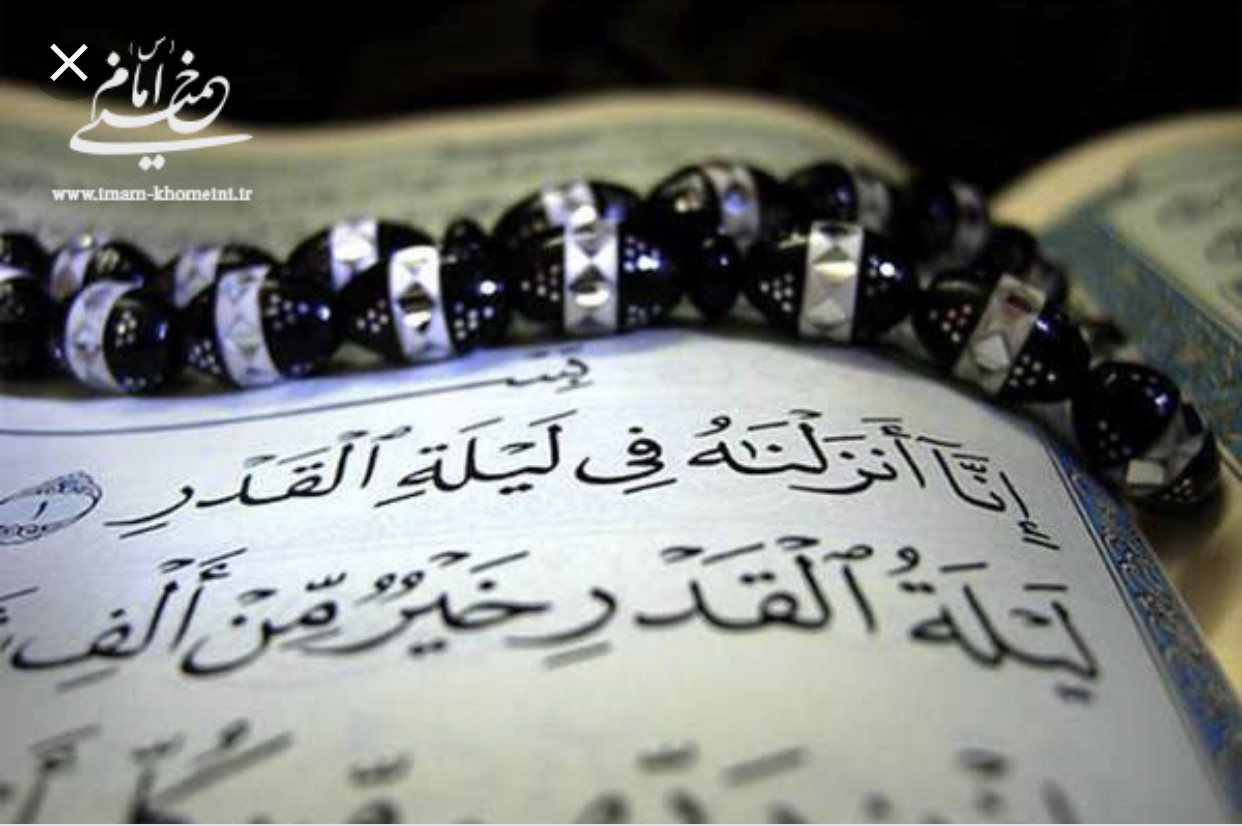 امام خمینی (س)
www.imam-khomeini.ir
بِسْـ
إِنَّآ أَنزَلْنَٰهُ فِى لَيْلَةِ ٱلْقَدْرِ ١
لَيْلَةُ ٱلْقَدْرِ خَيْرٌ مِّنْ أَلْفِ